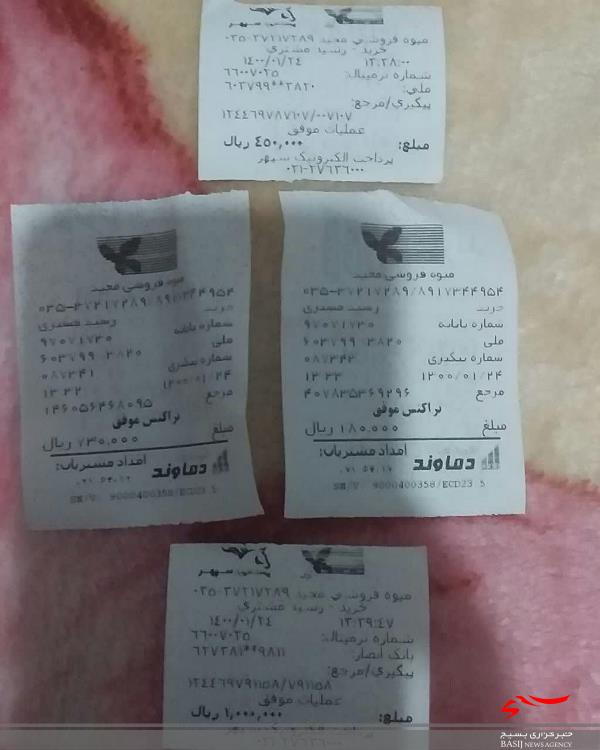 میوه فروشی مجید ۰۳۵-۳۷۲۱۷۲۸۹
خرید - رسید مشتری
۱۴۰۰/۰۱/۲۴ ۱۳:۲۸:۰۰
شماره ترمینال: ۶۶۰۰۷۰۲۵
ملی: ۶۰۳۷۹۹**۳۸۲۰
پیگیری/مرجع:
۱۲۴۴۶۹۷۸۷۱۰۷/۰۰۷۱۰۷
عملیات موفق
مبلغ: ۴۵۰,۰۰۰ ریال
پرداخت الکترونیک سپهر
۰۲۱-۲۷۶۳۶۰۰۰
میوه فروشی مجید
۰۳۵-۳۷۲۱۷۲۸۹/۸۹۱۷۳۴۴۹۵۴
خرید رسید مشتری
شماره پایانه ۹۷۰۷۱۷۳۰
ملی ۶۰۳۷۹۹ ۳۸۲۰
شماره پیگیری ۰۸۷۳۴۱
۱۴۰۰/۰۱/۲۴ ۱۳:۳۲
مرجع ۱۴۶۰۵۶۴۶۸۰۹۵
تراکنش موفق
مبلغ ۷۳۰,۰۰۰ ریال
دماوند امداد مشتریان:
SN/V: 9000400358/ECD23.5
میوه فروشی مجید
۰۳۵-۳۷۲۱۷۲۸۹/۸۹۱۷۳۴۴۹۵۴
خرید رسید مشتری
شماره پایانه ۹۷۰۷۱۷۳۰
ملی ۶۰۳۷۹۹ ۳۸۲۰
شماره پیگیری ۰۸۷۳۴۲
۱۴۰۰/۰۱/۲۴ ۱۳:۳۳
مرجع ۴۰۷۸۳۵۳۶۹۲۹۶
تراکنش موفق
مبلغ ۱۸۰,۰۰۰ ریال
دماوند امداد مشتریان:
SN/V: 9000400358/ECD23.5
میوه فروشی مجید ۰۳۵-۳۷۲۱۷۲۸۹
خرید - رسید مشتری
۱۴۰۰/۰۱/۲۴ ۱۳:۲۹:۴۷
شماره ترمینال: ۶۶۰۰۷۰۲۵
بانک انصار: ۶۲۷۳۸۱**۹۸۱۱
پیگیری/مرجع:
۱۲۴۴۶۹۷۹۱۱۵۸/۷۹۱۱۵۸
عملیات موفق
مبلغ: ۱,۰۰۰,۰۰۰ ریال
خبرگزاری بسیج
BASIJ NEWS AGENCY